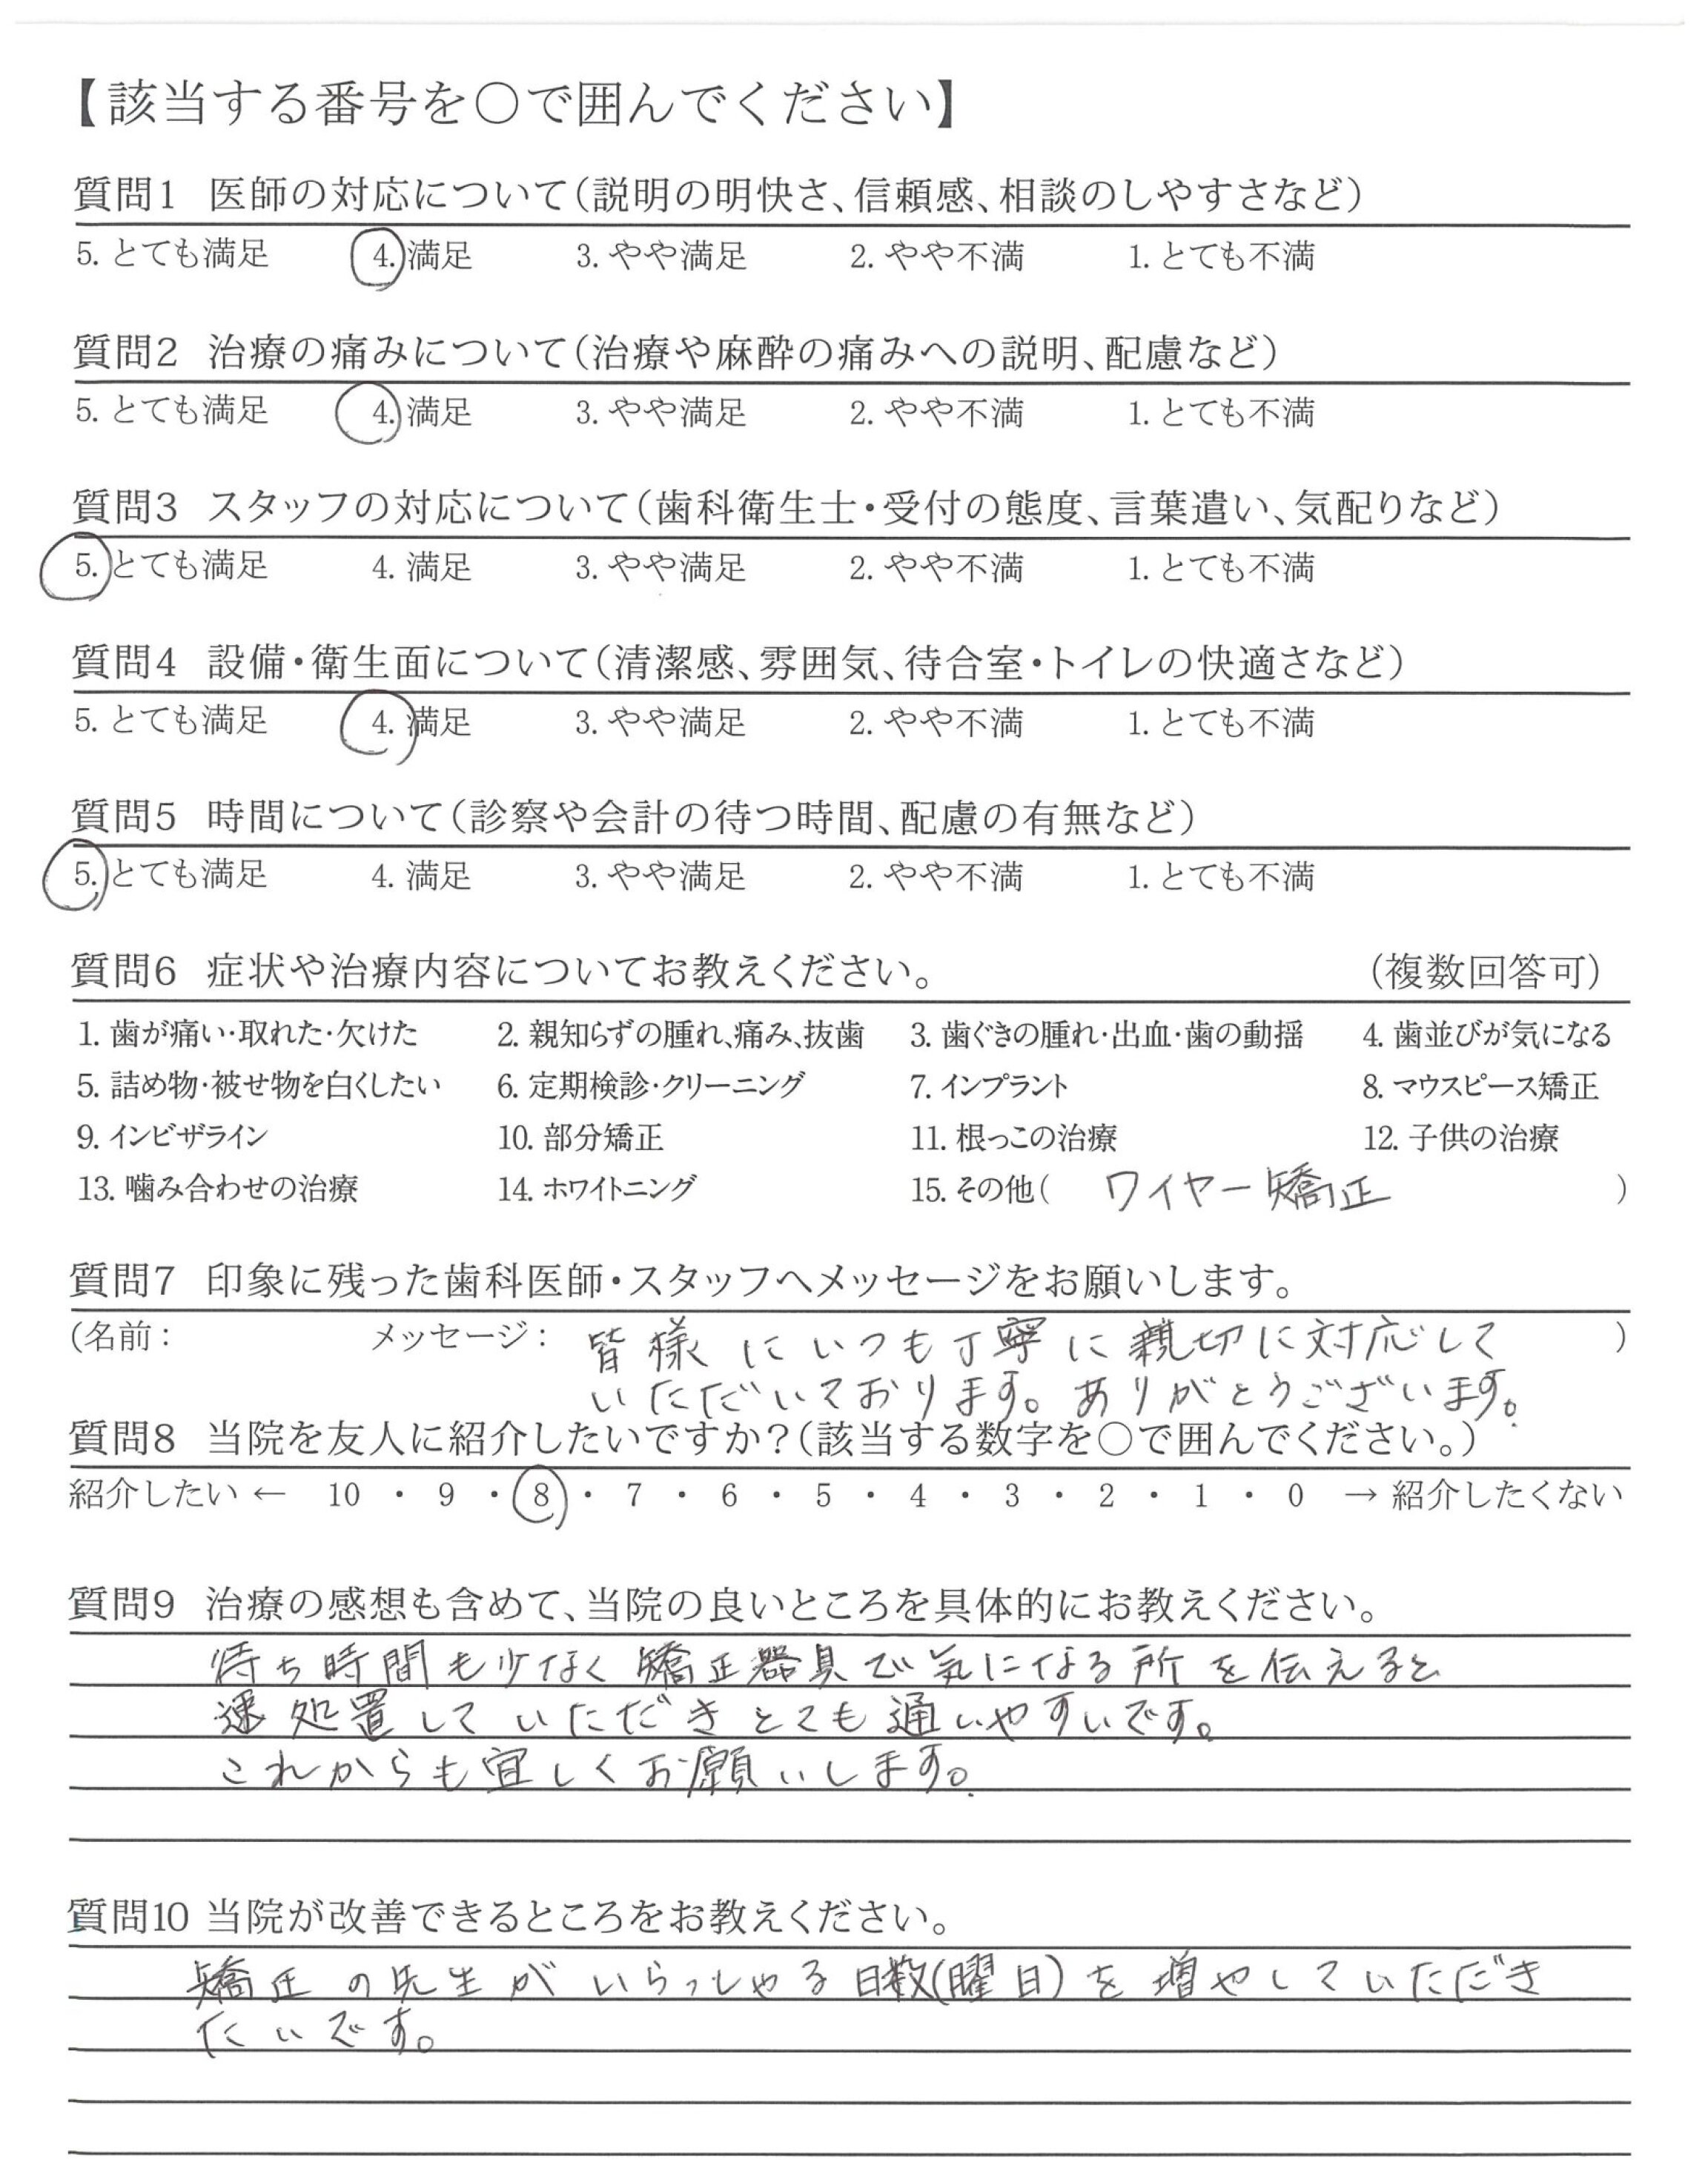 【該当する番号を〇で囲んでください】
質問1 医師の対応について(説明の明快さ、信頼感、相談のしやすさなど)
5. とても満足 4. 満足 3. やや満足 2. やや不満 1. とても不満
質問2 治療の痛みについて(治療や麻酔の痛みへの説明、配慮など)
5. とても満足 4. 満足 3. やや満足 2. やや不満 1. とても不満
質問3 スタッフの対応について(歯科衛生士・受付の態度、言葉遣い、気配りなど)
5. とても満足 4. 満足 3. やや満足 2. やや不満 1. とても不満
質問4 設備・衛生面について(清潔感、雰囲気、待合室・トイレの快適さなど)
5. とても満足 4. 満足 3. やや満足 2. やや不満 1. とても不満
質問5 時間について(診察や会計の待つ時間、配慮の有無など)
5. とても満足 4. 満足 3. やや満足 2. やや不満 1. とても不満
質問6 症状や治療内容についてお教えください。 (複数回答可)
1. 歯が痛い・取れた・欠けた 2. 親知らずの腫れ、痛み、抜歯 3. 歯ぐきの腫れ・出血・歯の動揺 4. 歯並びが気になる
5. 詰め物・被せ物を白くしたい 6. 定期検診・クリーニング 7. インプラント 8. マウスピース矯正
9. インビザライン 10. 部分矯正 11. 根っこの治療 12. 子供の治療
13. 噛み合わせの治療 14. ホワイトニング 15. その他( ワイヤー矯正 )
質問7 印象に残った歯科医師・スタッフへメッセージをお願いします。
(名前: メッセージ: 皆様にいつも丁寧に親切に対応して )
いただいております。ありがとうございます。
質問8 当院を友人に紹介したいですか?(該当する数字を〇で囲んでください。)
紹介したい ← 10 ・ 9 ・ 8 ・ 7 ・ 6 ・ 5 ・ 4 ・ 3 ・ 2 ・ 1 ・ 0 → 紹介したくない
質問9 治療の感想も含めて、当院の良いところを具体的にお教えください。
待ち時間も少なく矯正器具で気になる所を伝えると
速処置していただきとても通いやすいです。
これからも宜しくお願いします。
質問10 当院が改善できるところをお教えください。
矯正の先生がいらっしゃる日数(曜日)を増やしていただき
たいです。